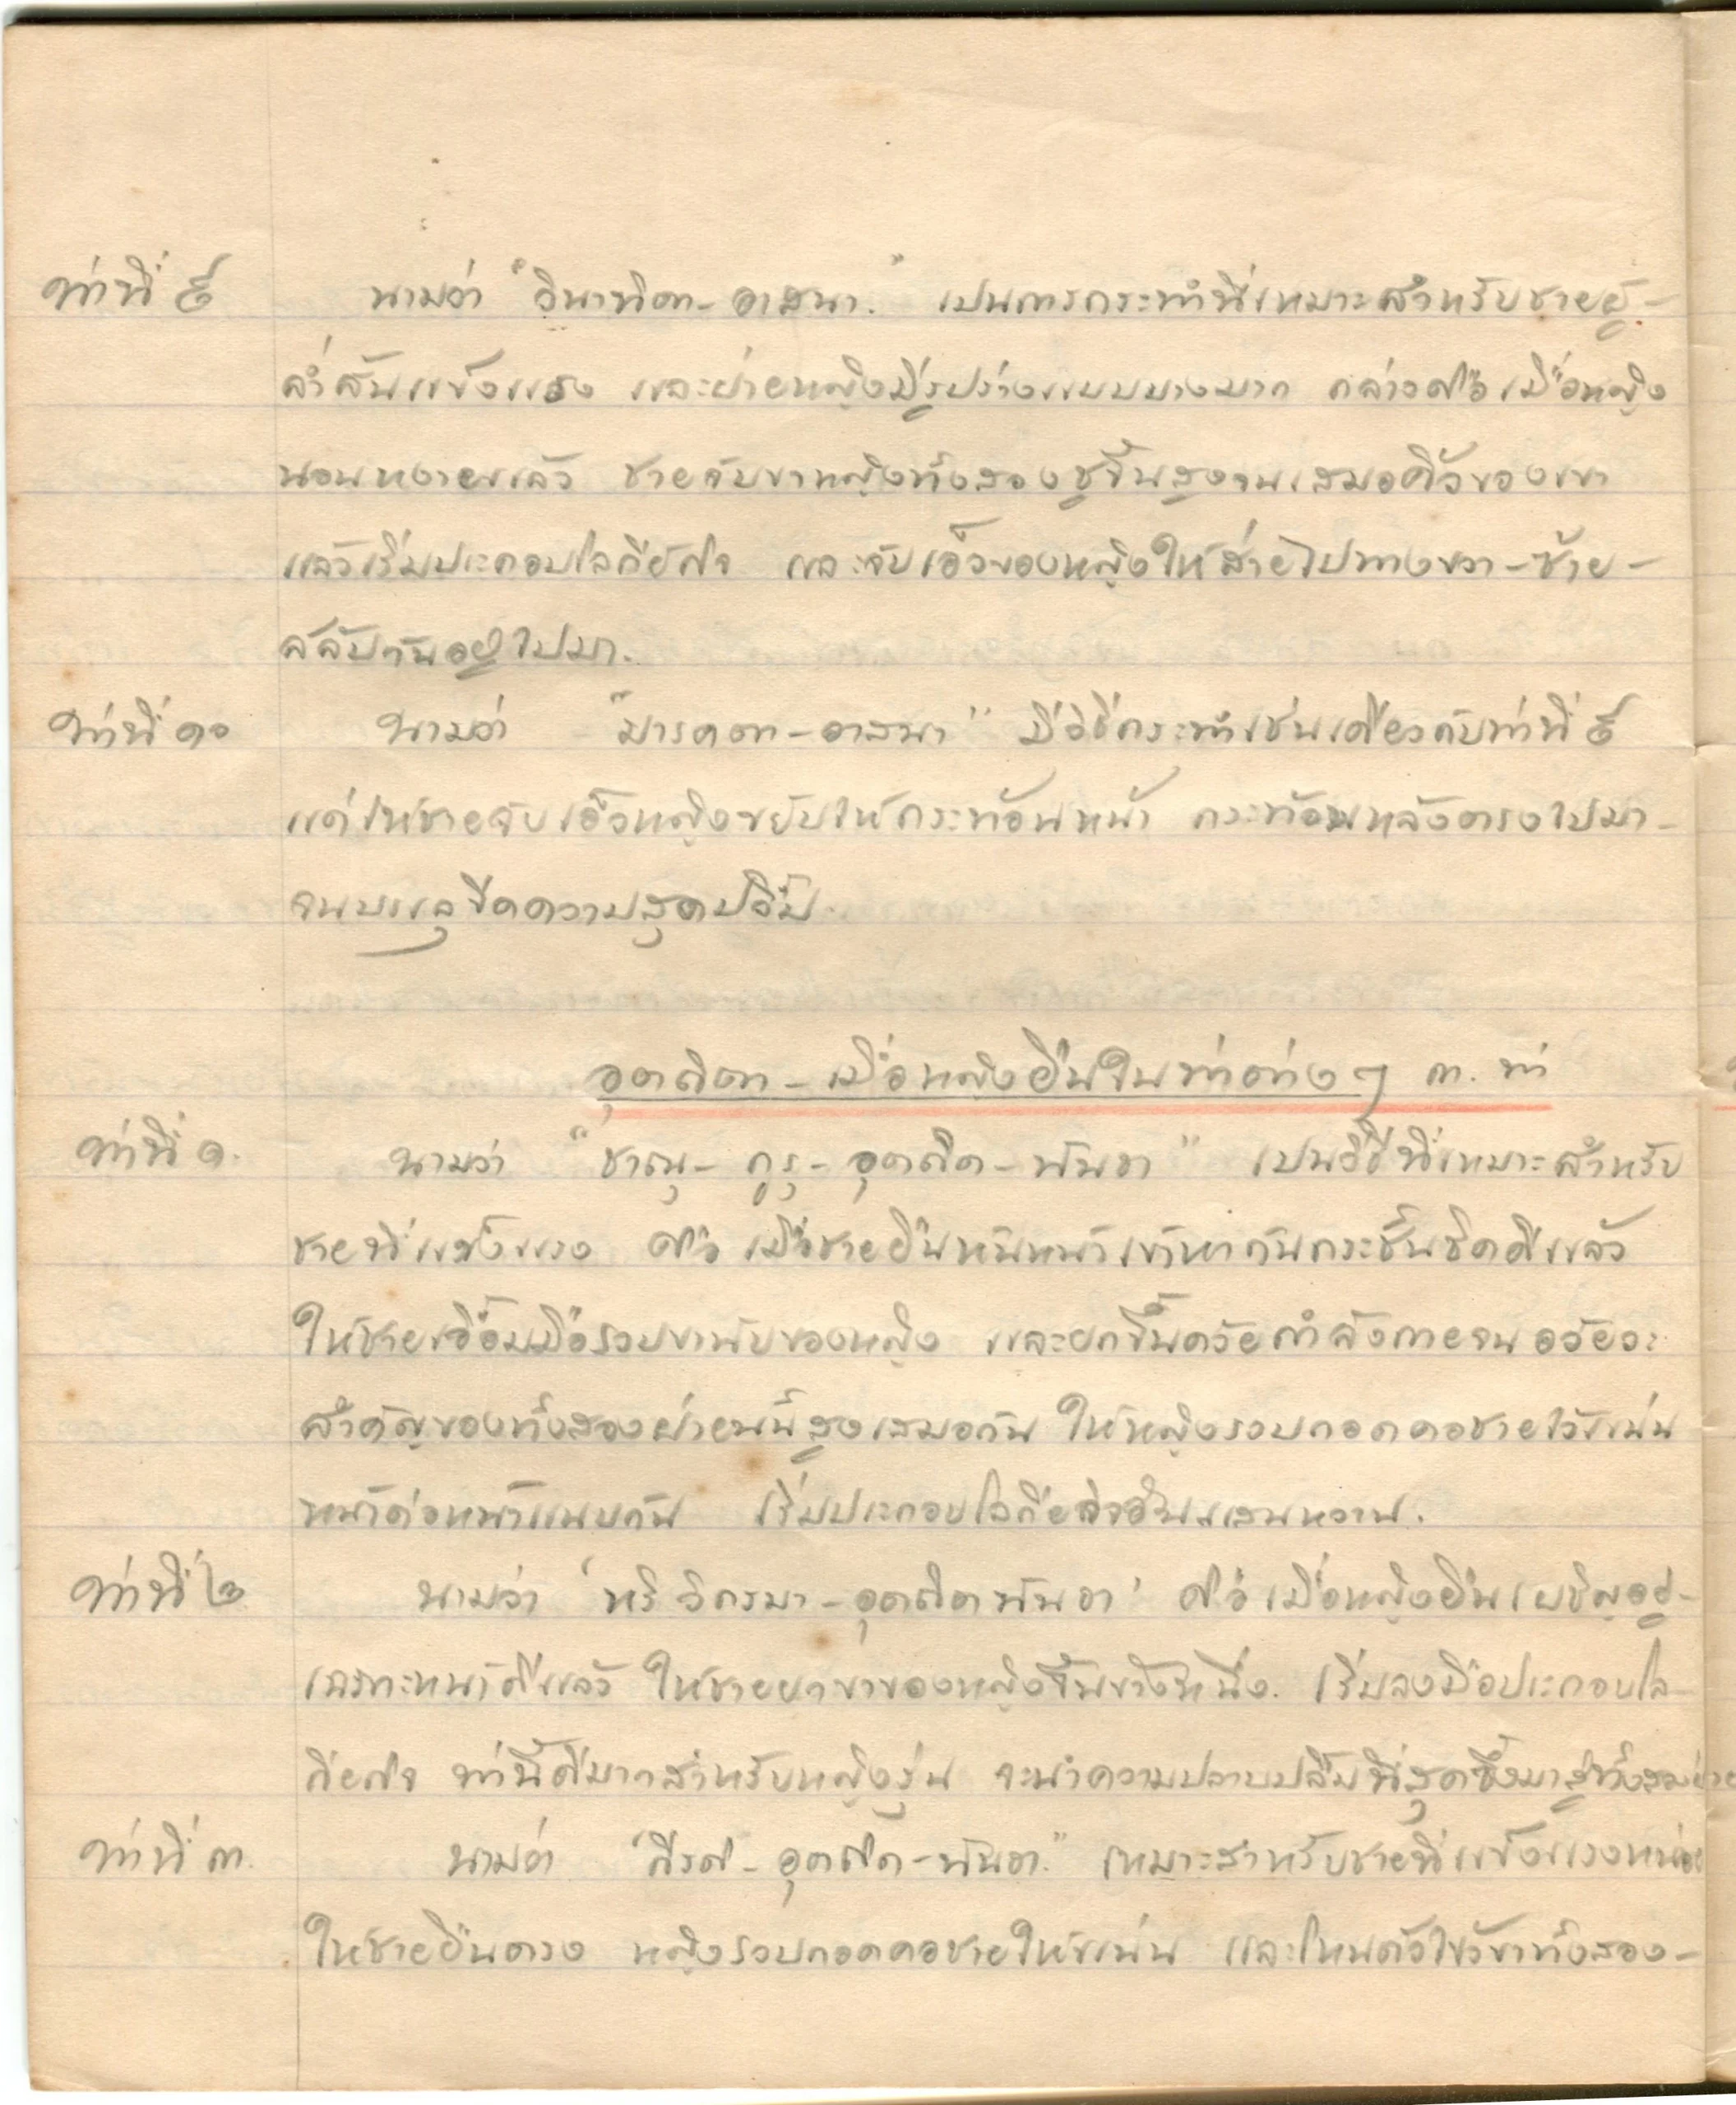 ท่าที่ ๙ นามว่า "วินาทิตา-อาสนา." เปนการกระทำที่เหมาะสำหรับชายผู้-
ล่ำสันแข็งแรง และฝ่ายหญิงมีรูปร่างแบบบางมาก กล่าวคือ เมื่อหญิง
นอนหงายแล้ว ชายจับขาหญิงทั้งสองชูขึ้นสูงจนเสมอศีวของเขา
แล้วเริ่มประกอบโลกียกิจ และจับเอ็วของหญิงให้ส่ายไปทางขวา-ซ้าย-
สลับกันอยู่ไปมา.
ท่าที่ ๑๐ นามว่า "มารคตา-อาสนา" มีวิธีกระทำเช่นเดียวกับท่าที่ ๙
แต่ให้ชายจับเอ็วหญิงขยับให้กระท้อนหน้า กระท้อนหลังตรงไปมา-
จนบรรลุขีดความสุดปลื้ม.
อุตถิตา-เมื่อหญิงยืนในท่าต่าง ๆ ๓. ท่า
ท่าที่ ๑. นามว่า "ชาณุ-กูรุ-อุตถิต-พันธา" เปนวิธีที่เหมาะสำหรับ
ชายที่แข็งแรง คือ เมื่อชายยืนหันหน้าเข้าหากันกระชั้นชิดดีแล้ว
ให้ชายเอื้อมมือรวบขาพับของหญิง และยกขึ้นด้วยกำลังกายจนอวัยวะ
สำคัญของทั้งสองฝ่ายนี้สูงเสมอกัน ให้หญิงรวบกอดคอชายไว้แน่น
หน้าต่อหน้าแนบกัน เริ่มประกอบโลกียกิจอันแสนหวาน.
ท่าที่ ๒ นามว่า 'หริวิกรมา-อุตถิตพันธา' คือ เมื่อหญิงยืนเผชิญอยู่-
เฉพาะหน้าดีแล้ว ให้ชายยกขาของหญิงขึ้นข้างหนึ่ง. เริ่มลงมือประกอบโล-
กียกิจ ท่านี้ดีมากสำหรับหญิงรุ่น จะนำความปลาบปลื้มที่สุดซึ้งมาสู่ทั้งสองฝ่าย
ท่าที่ ๓. นามว่า "กีรติ-อุตถิต-พันธา." เหมาะสำหรับชายที่แข็งแรงหน่อย
ให้ชายยืนตรง หญิงรวบกอดคอชายให้แน่น และโหนตัวไขว้ขาทั้งสอง-